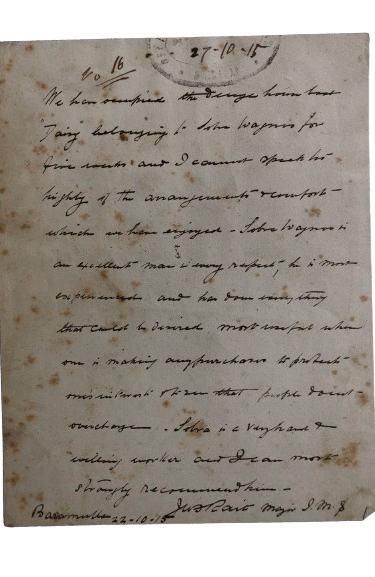 No 16
27-10-15
We have occupied the Dunga house boat
Daisy belonging to Sobra Wagnoo for
five weeks and I cannot speak too
highly of the arrangements & comfort
which we have enjoyed - Sobra Wagnoo is
an excellent man in every respect, he is most
experienced and has done everything
that could be desired, most useful when
one is making any purchases to protect
ones interest & to see that people do not
overcharge. Sobra is a very hard &
willing worker and I can most
strongly recommend him -
Baramulla 22-10-15 Major I.M.S